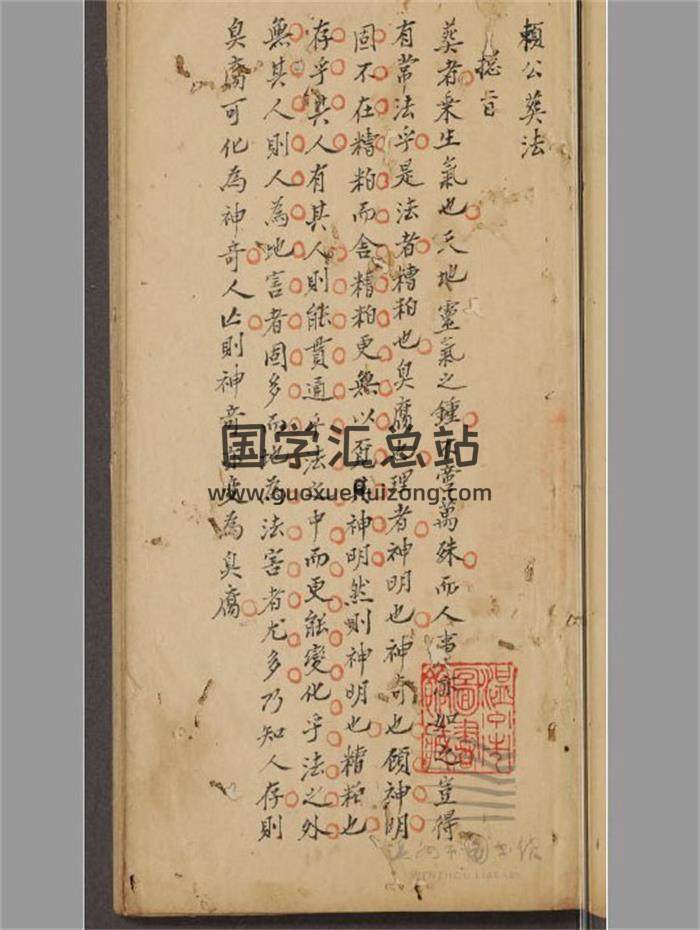 賴公葬法
總旨
葬者乗生氣也天地靈氣之鍾帯萬殊而人事亦如之豈得
有常法乎是法者糟粕也臭腐也理者神明也神奇也顧神明
固不在糟粕而舍糟粕更無以見其神明然則神明也糟粕也
存乎其人有其人則能貫通乎法之中而更能變化乎法之外
無其人則人為地害者固多而地為法害者尤多乃知人存則
臭腐可化為神奇人亡則神奇亦変為臭腐
国学汇总站
www.guoxuehuizong.com
圖書
WENZHOU LIBRARY